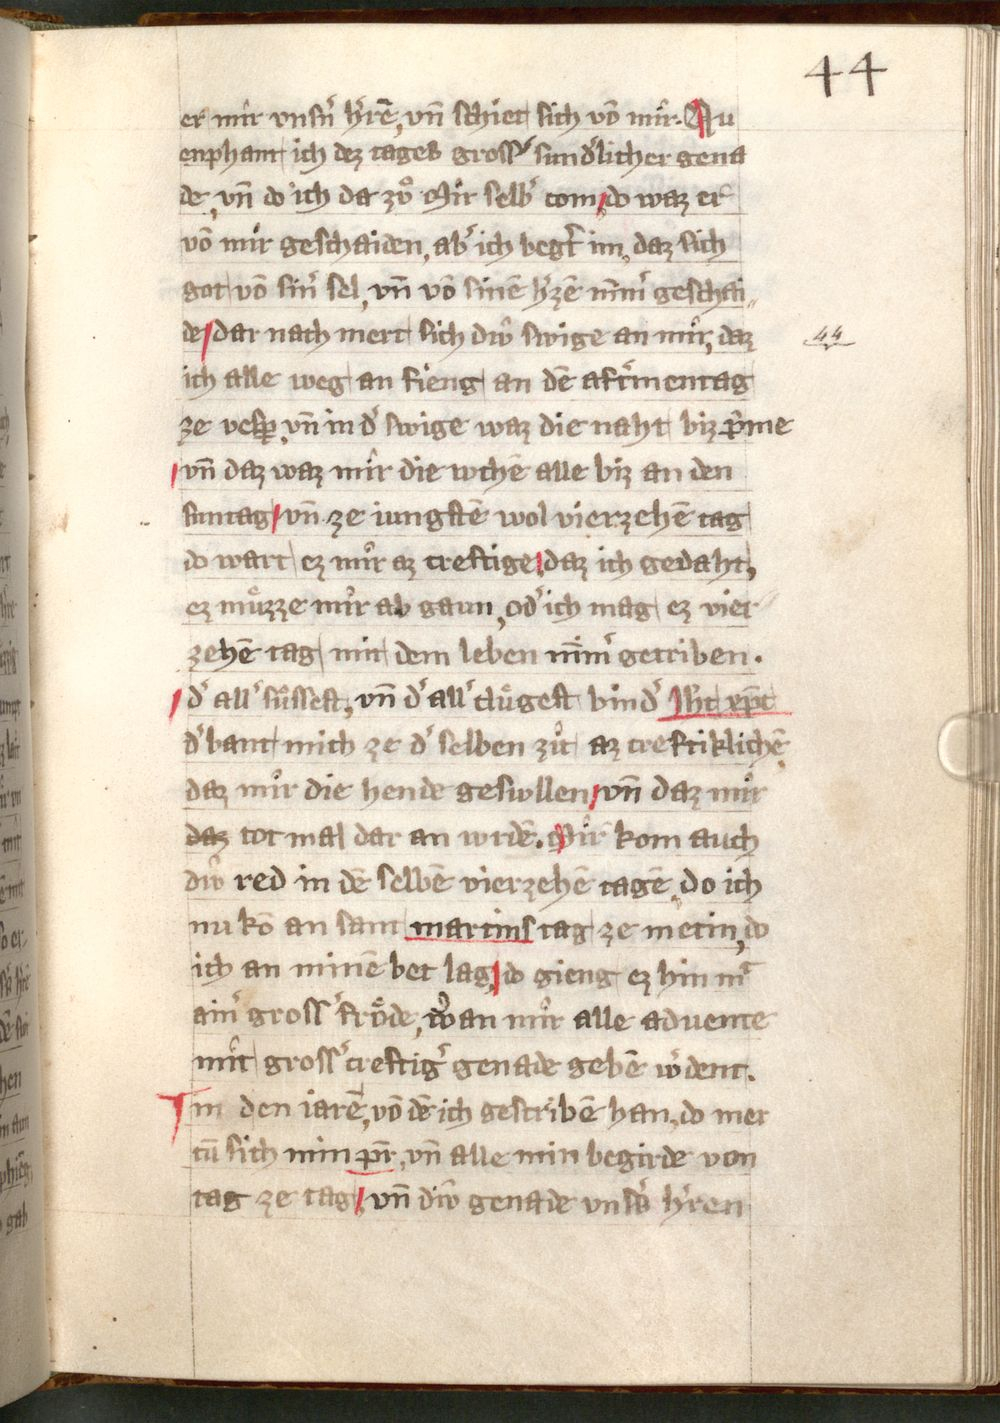 44
er mir vnsn᾿ h᾿rē, vn̄ schiet sich vō mir. Nu
enphant ich dez tages gross᾿ sund᾿licher gena
de, vn̄ do ich da zuͦ mir selb᾿ com, do waz er
vō mir geschaiden, ab᾿ ich beg᾿t im, daz sich
got vō sin᾿ sel, vn̄ vō sinē h᾿zē nim᾿ geschai„
de, dar nach mert sich diu swige an mir, daz
ich alle weg an fieng an dē aft᾿mentag
ze vesꝑ, vn̄ in d᾿ swige waz die naht biz p᾿me
44
vn̄ daz waz mir die wchē alle biz an den
suntag, vn̄ ze iungstē wol vierzehē tag
do wart ez mir az creftige, daz ich gedaht,
ez muͤzze mir ab gaun, od᾿ ich mag ez vier
zehē tag mit dem leben nim᾿ getriben.
d᾿ all᾿ suͤssest, vn̄ d᾿ all᾿ cluͤgest bind᾿ Jh᾿c xp̄c
d᾿ bant mich ze d᾿ selben zit az creftiklichē,
daz mir die hende geswllen, vn̄ daz mir
daz tot mal dar an wrdē. Mir kom auch
diu red in dē selbē vierzehē tagē, do ich
nu kō an sant martins tag ze metin, do
ich an minē bet lag, do gieng ez hin mit
ain᾿ gross᾿ froͤde, wan mir alle aduente
mit gross᾿ creftig᾿ genade gebē w᾿dent.
In den iarē, vō dē ich gescribē han, do mer
tū sich min pīn, vn̄ alle min begirde von
tag ze tag, vn̄ diu genade vns᾿s h᾿ren